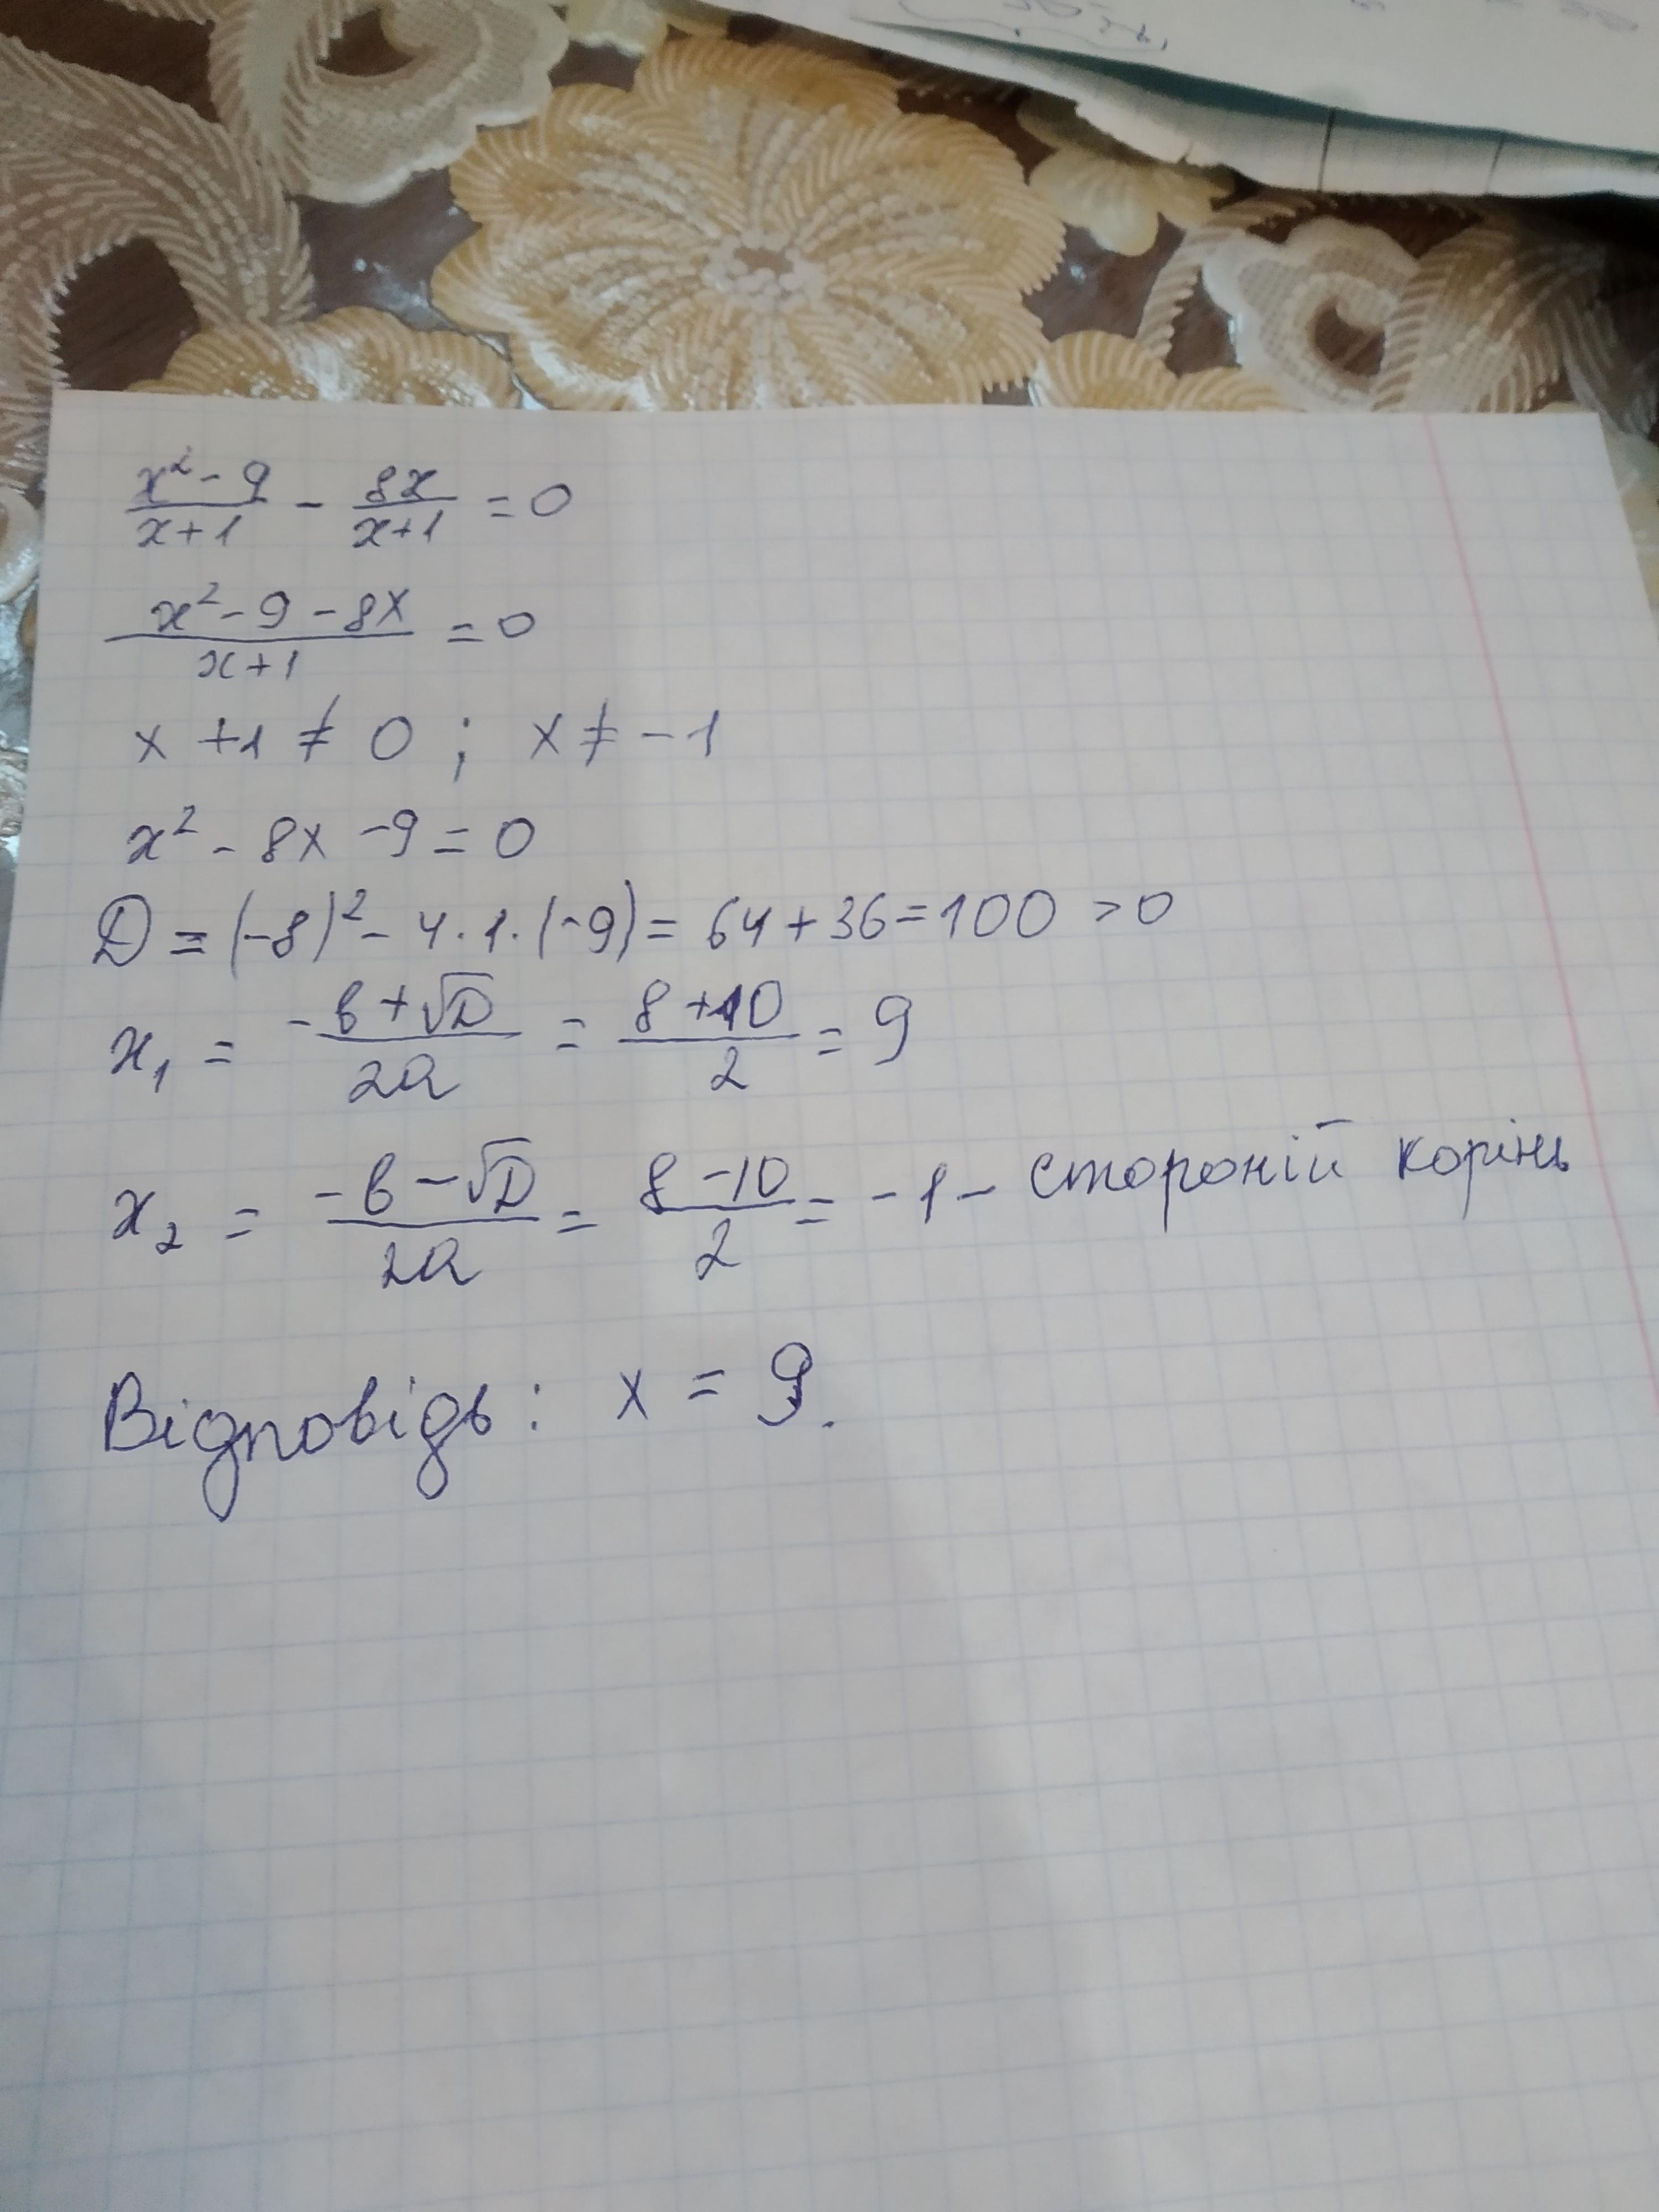 x² - 9 / x + 1 - 8x / x + 1 = 0
x² - 9 - 8x / x + 1 = 0
x + 1 ≠ 0 ; x ≠ - 1
x² - 8x - 9 = 0
D = (-8)² - 4 · 1 · (-9) = 64 + 36 = 100 > 0
x₁ = -b + √D / 2a = 8 + 10 / 2 = 9
x₂ = -b - √D / 2a = 8 - 10 / 2 = - 1 - стороній корінь
Відповідь : x = 9.